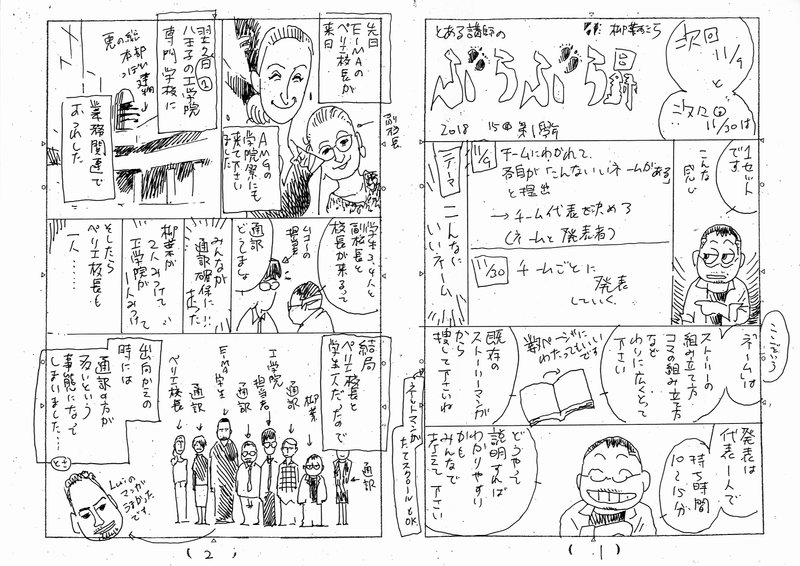 とある講師の
ぶらぶら
2018
第1
次回
11/9
と
次々回
11/30は
1セット
です
こんな
感じ
テーマ
こんなに
いいネーム
11/9
チームにわかれて、
各自が「こんないいネームがある」
と提出
→チーム代表を決める
(ネームと発表者)
11/30
チームごとに
発表
していく
ここでいう
ネームは
ストーリーの
組み立て方
コマの組み立て方
など
わりに広くとって
下さい
数ページに
わたってもいい
です
既存の
ストーリーマンガ
から
捜して下さいね
発表は
代表一人で
持ち時間
10〜15分
どうやって
説明すれば
わかりやすい
かも
みんなで
考えて下さい
(1)
先日
EIMAの
ペリエ校長が
来日
副校長
AMGの
学院祭にも
来て下さい
ました
翌日
八王子の工学院
専門学校に
悪の総
本部
っぽい
建物
業務関連で
おこしました
学生3、4人と
副校長と
校長が来るって
通訳
どうしましょ
みんなが
通訳確保に
走った!!
柳葉が
2人みつけて
工学院が
1人みつけて
そしたら
ペリエ校長も
一人……
結局
ペリエ校長と
学生1人だったので
通訳
柳葉
通訳
工学院
担当者
通訳
EIMA
学生
通訳
ペリエ校長
出向かえの
時には
通訳の方が
多いという
事態になって
しまいました……
Luiの
マンガ
うまかった
です。
(2)